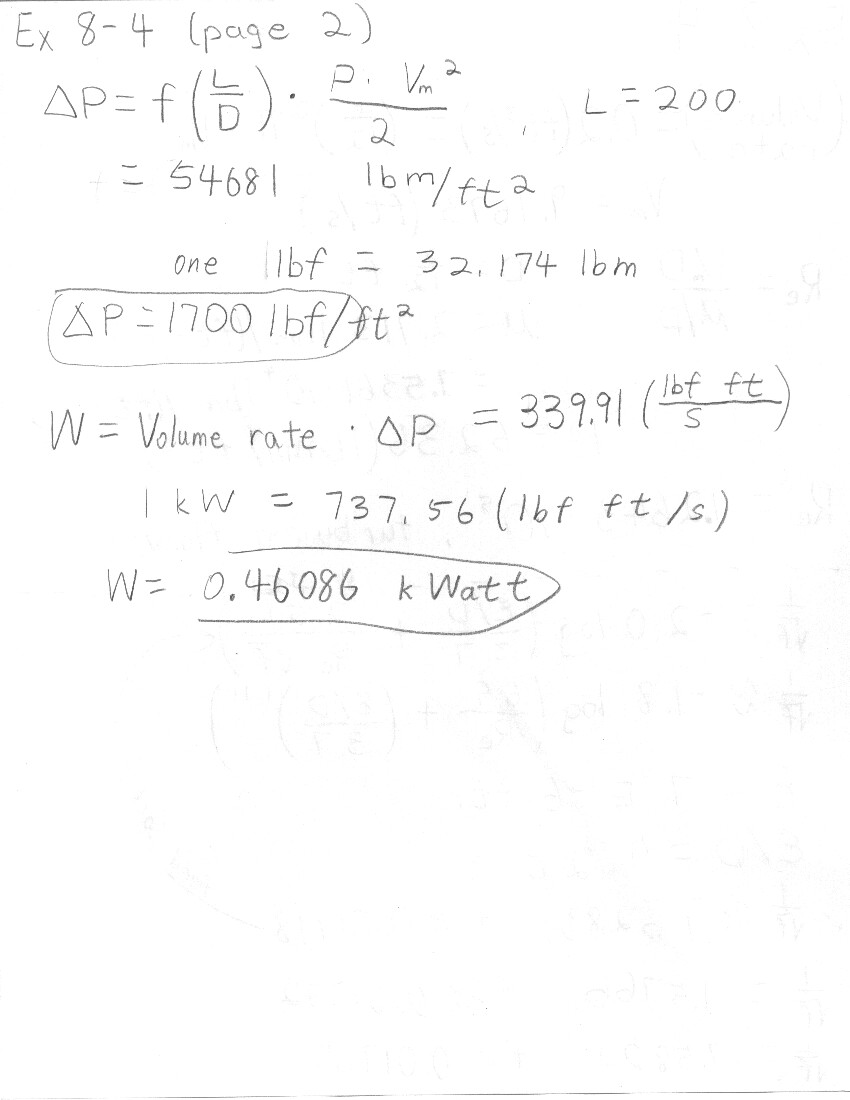 Ex 8-4 (page 2)
ΔP = f (L/D) · ρ · Vm² / 2 , L = 200
= 54681 lbm/ft²
one lbf = 32.174 lbm
ΔP = 1700 lbf/ft²
W = Volume rate · ΔP = 339.91 (lbf ft / s)
1 kW = 737.56 (lbf ft /s)
W = 0.46086 k Watt